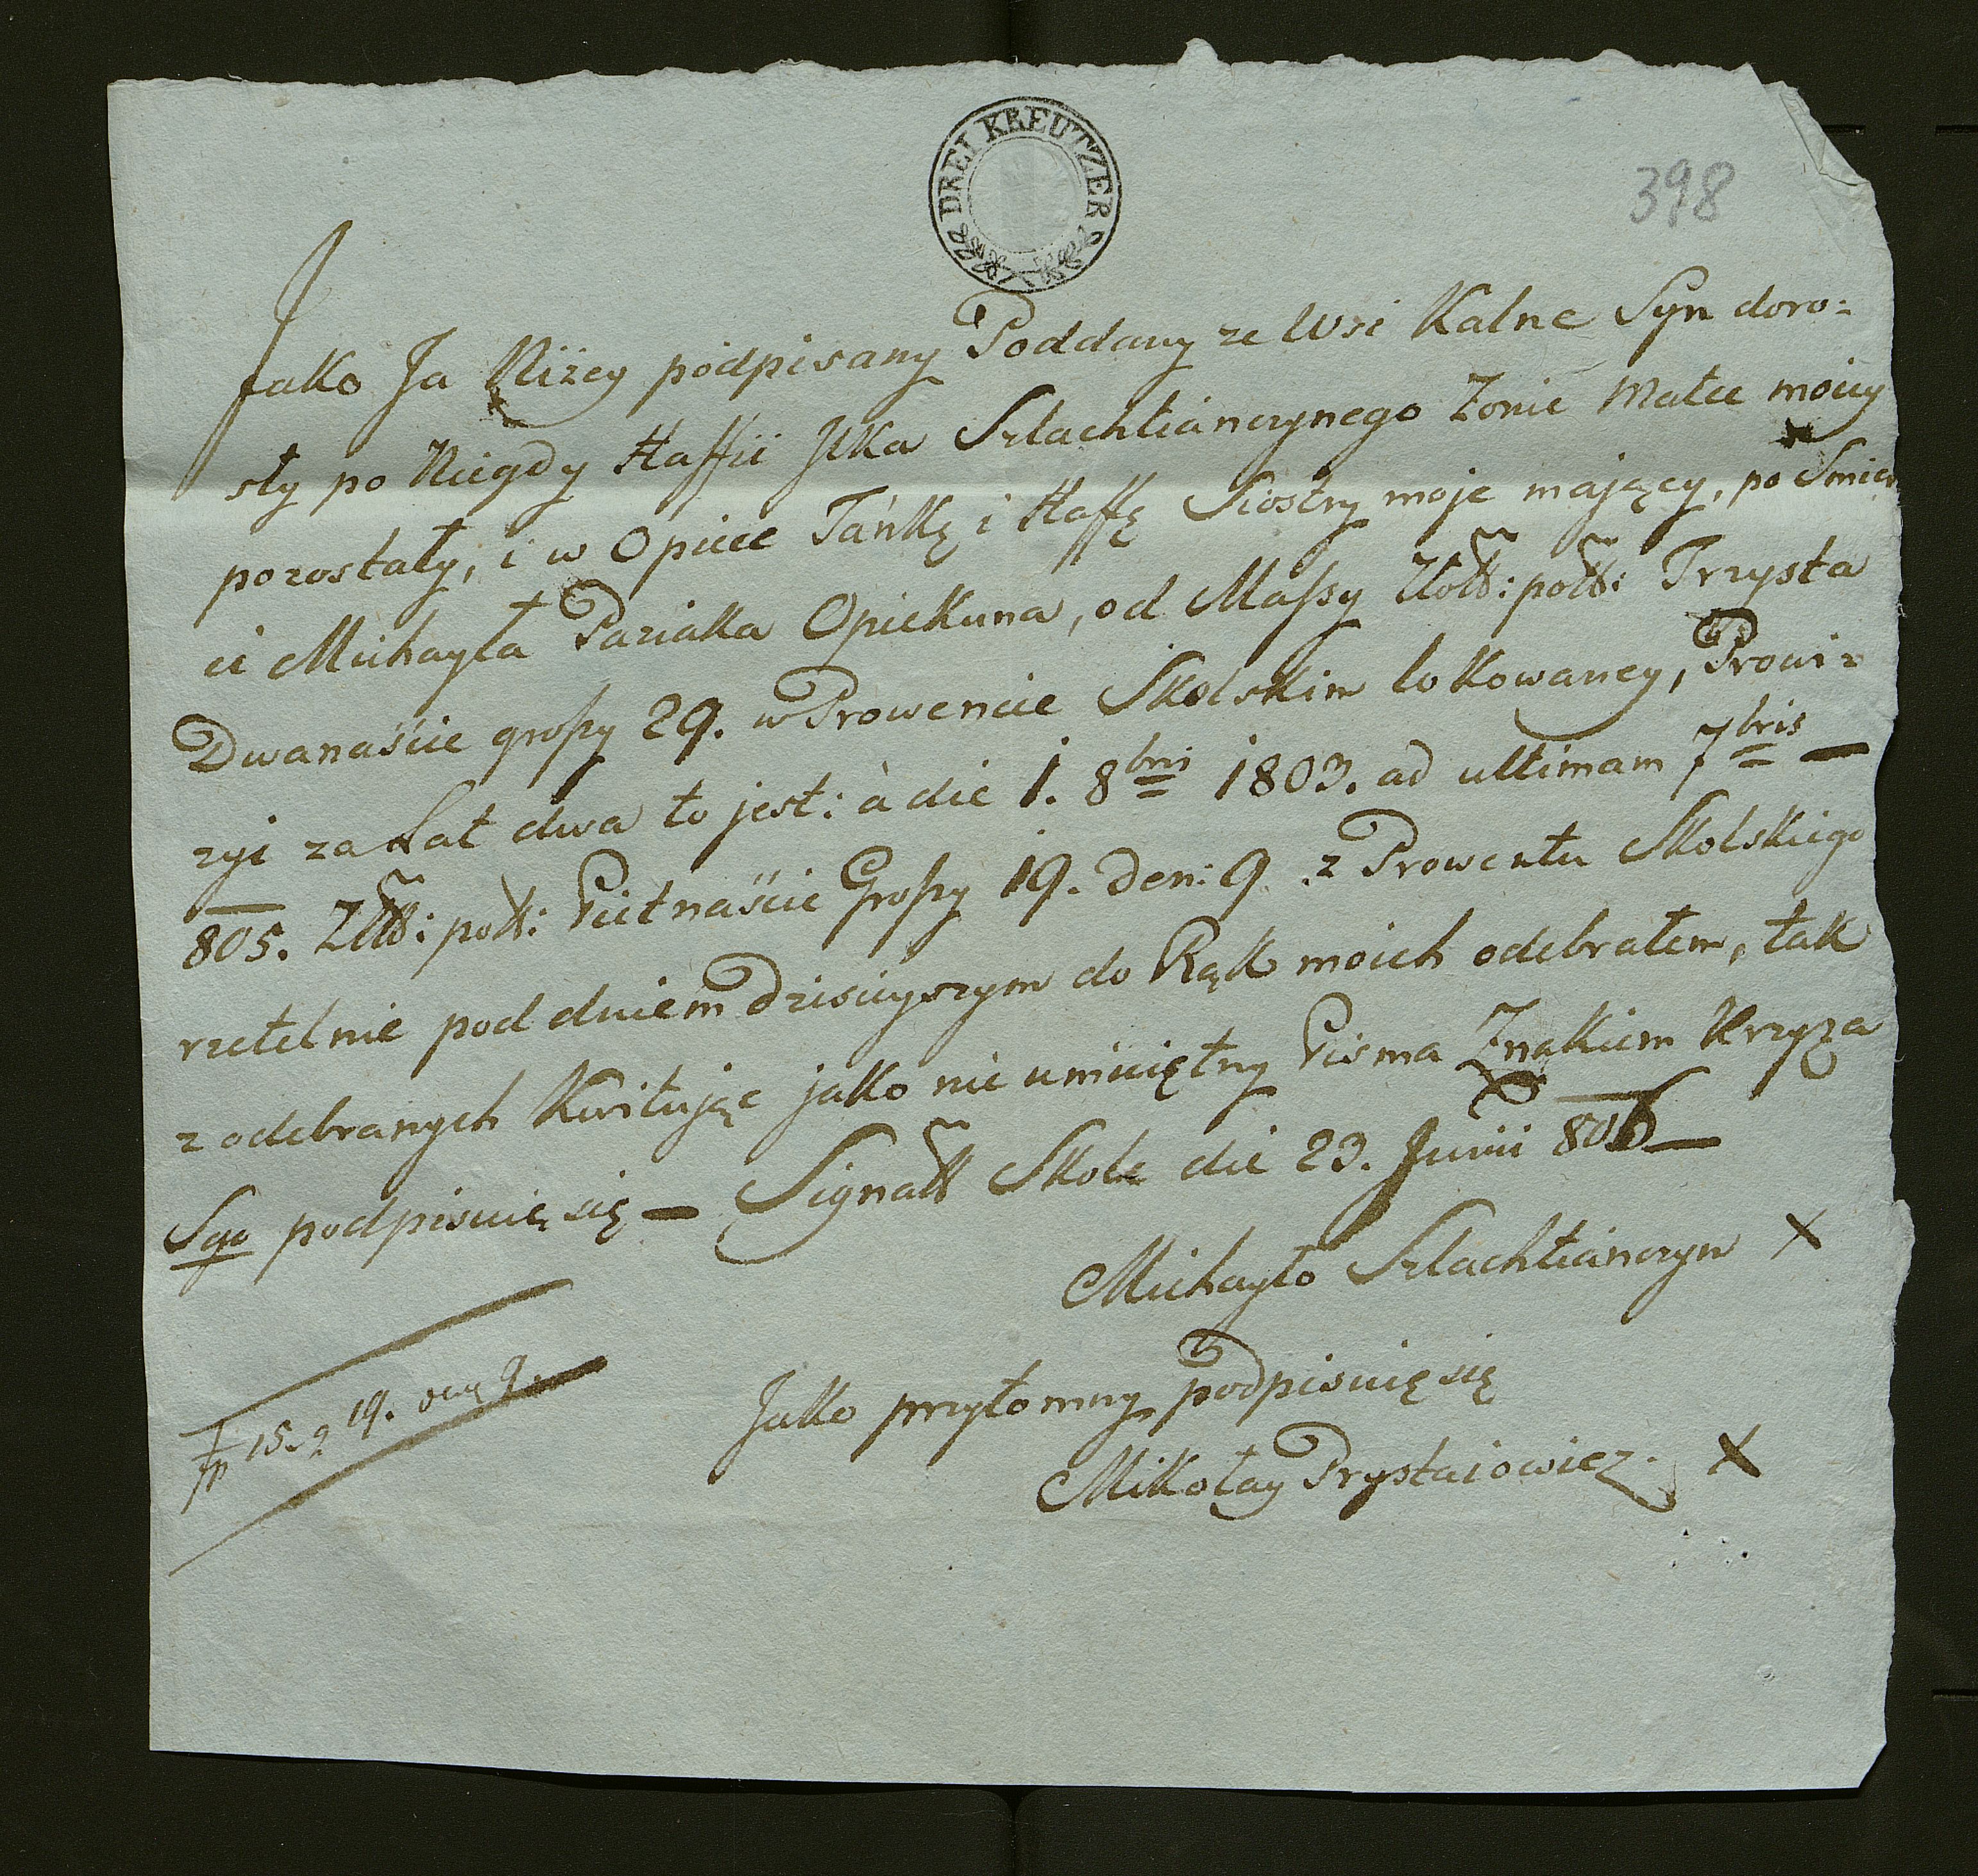 DREI KREUTZER
398
Jako Ja Niżey podpisany Poddany ze Wsi Kalne Syn doro=
sły po Niegdy Haffii Jlka Szlachtianczynego Zonie Matce moiey
pozostały, i w Opiece Tańkę i Haffę Siostry moje mający, po Smier
ci Michayła Paziaka Opiekuna, od Massy Złott: poltt: Trzysta
Dwanaście groszy 29. w Prowencie Skolskim lokowaney, Prowi=
zyi za Lat dwa to jest: à die 1. 8bris 1803. ad ultimam 7bris
805. Złtt: poltt: Pietnaście Groszy 19. den: 9 z Prowentu Skolskiego
rzetelnie pod dniem Dzisieyszym do Rąk moich odebrałem, tak
z odebranych Kwitując jako nie umieiętny Pisma Znakiem Krzyża
Sgo podpisuię się — Signatt Skole die 23. Junii 806 —
Michayło Szlachtianczyn X
fp 15. g 19. 9
Jako przytomny podpisuię się
Mikołay Prystaiowicz. X